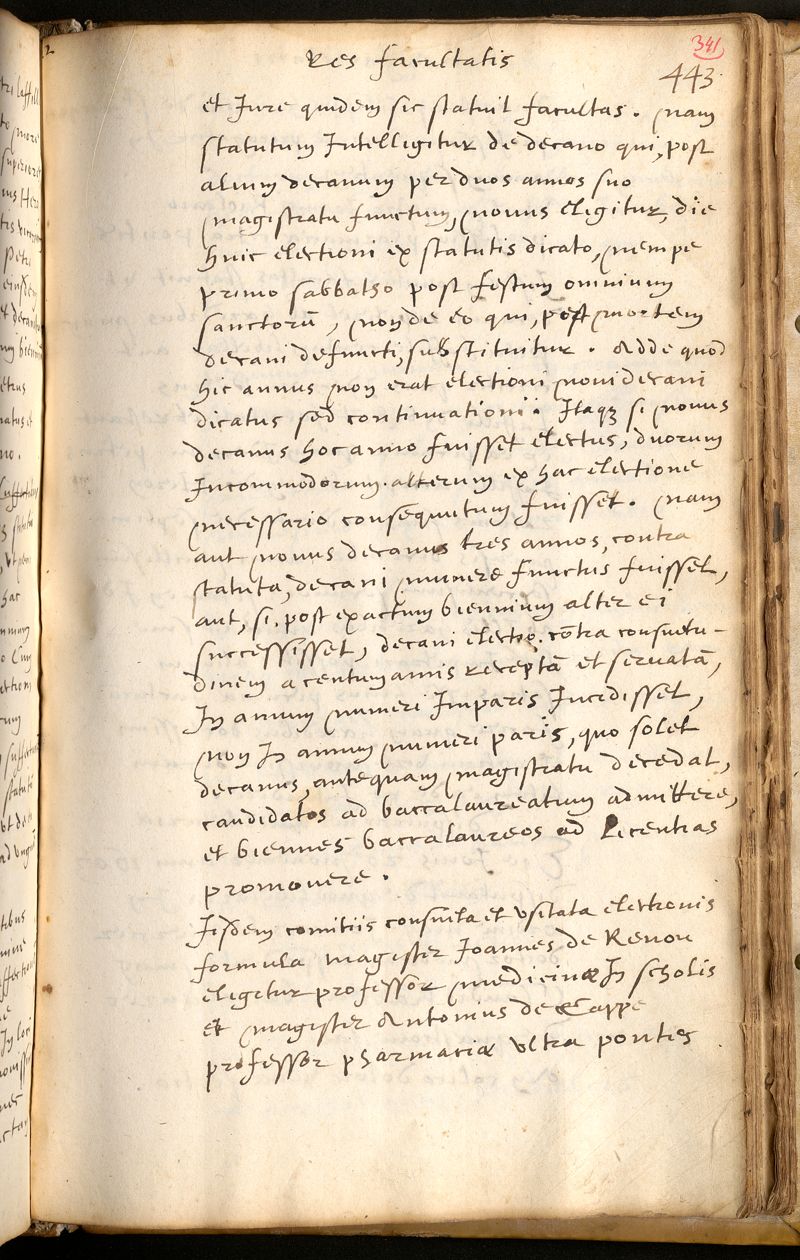 Res facultatis
341
443
et Iure quidem sic statuit facultas. nam
statutum Intelligitur de decano qui, post
alium decanum per duos annos suo
magistratu functum, novus eligitur, die
huic electioni ex statutis dicato, nempe
primo sabbatho post festum omnium
sanctorū, non de eo qui, post mortem
decani defuncti, substituitur. Adde quod
hic annus non erat electioni novi decani
dicatus sed continuationi. Itaqȝ si novus
decanus hoc anno fuisset electus, duorum
Incommodorum. alterum ex hac electione
necessario consequutum fuisset. nam
aut novus decanus tres annos, contra
statuta, decani munere functus fuisset,
aut, si, post exactum biennium alter ei
successisset, decani electio. cōtra consuetu-
dinem a centum annis receptā et servatā,
In annum numeri Imparis Incidisset,
non In annum numeri paris, quo solet
decanus, antequam magistratu decedat,
candidatos ad baccalaureatum admittere,
et biennes baccalaureos ad Licentias
promovere.
Iisdem comitiis consueta et usitata electionis
formula magister Ioannes de Renou
eligitur professor medicinæ In scholis
et magister Antonius de Cappe
professor pharmaciæ ultra pontes